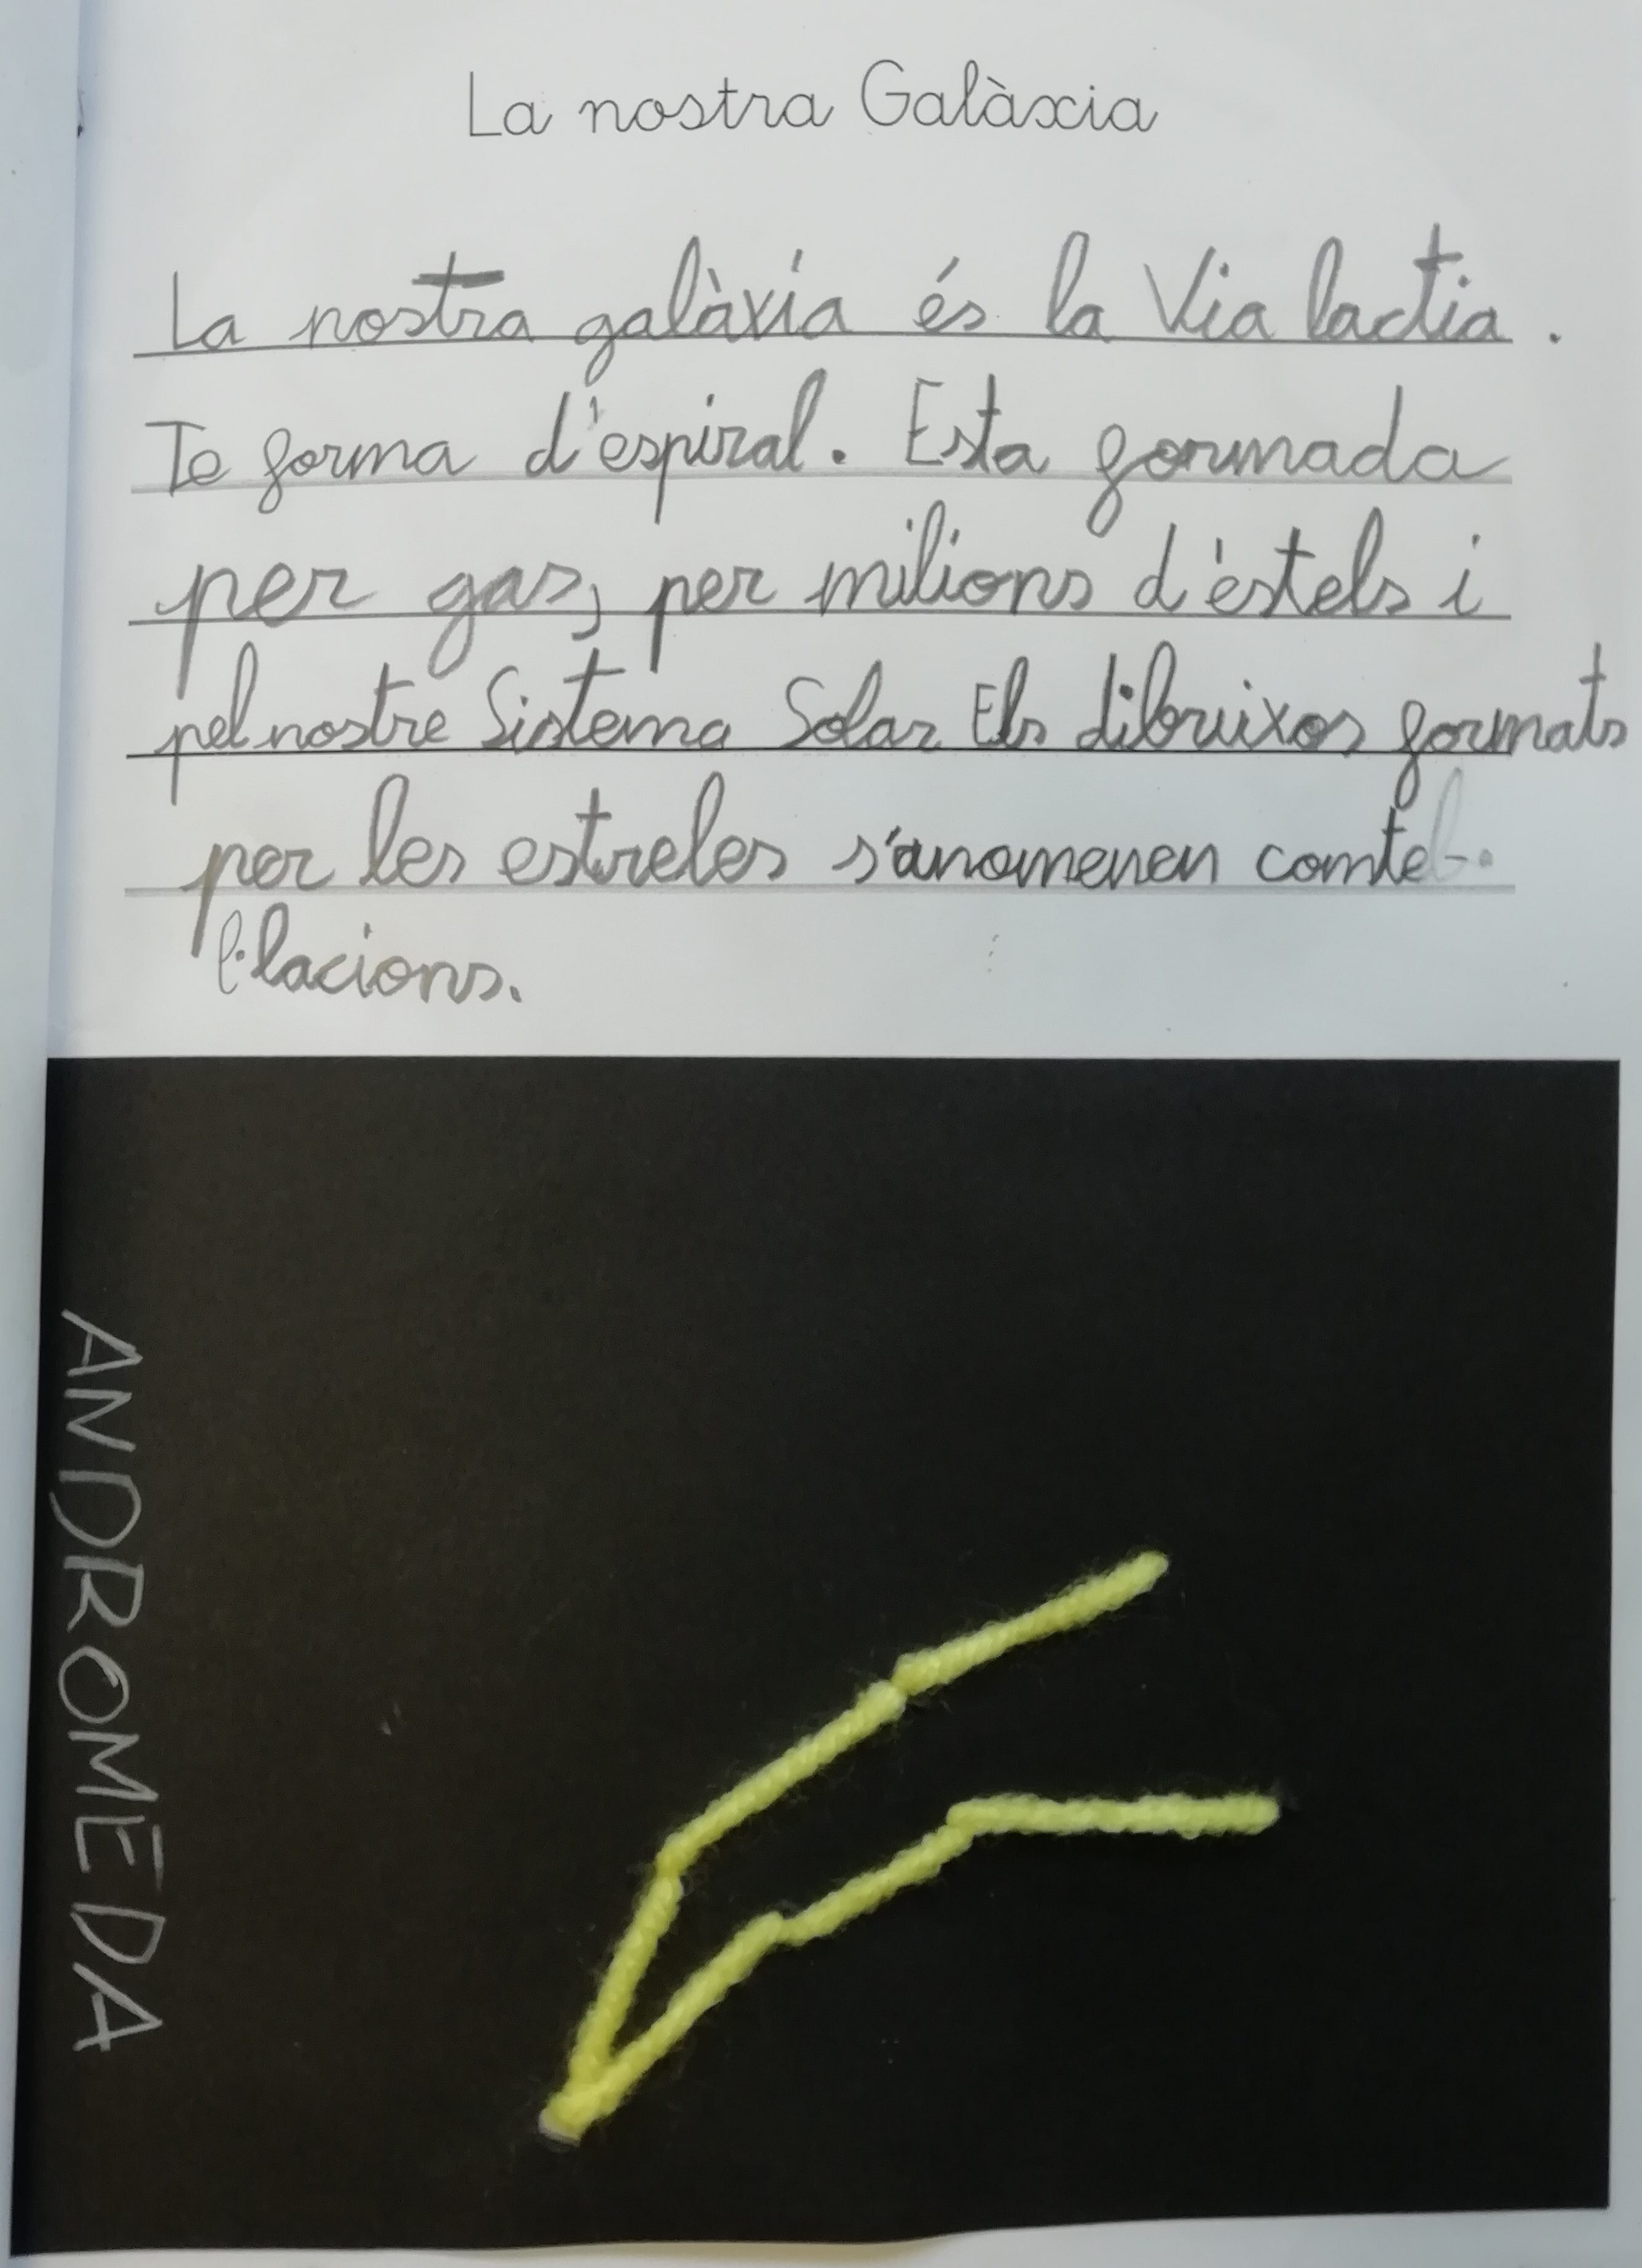 La nostra Galàxia
La nostra galàxia és la Via lactia.
Te forma d'espiral. Esta formada
per gas, per milions d'estels i
pel nostre Sistema Solar Els dibuixos formats
per les estreles s'anomenen comte
l·lacions.
ANDROMEDA